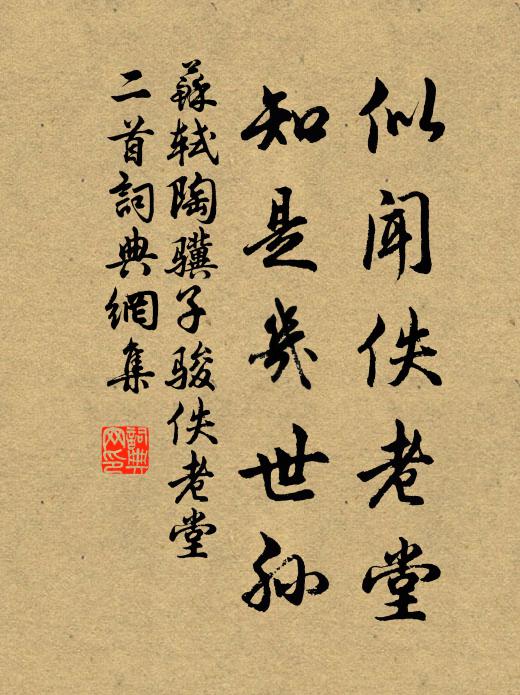 似闻佚老堂
知是幾世孙
蘇轼陶骥子骏佚老堂
二首詞典網集
詞典
网印